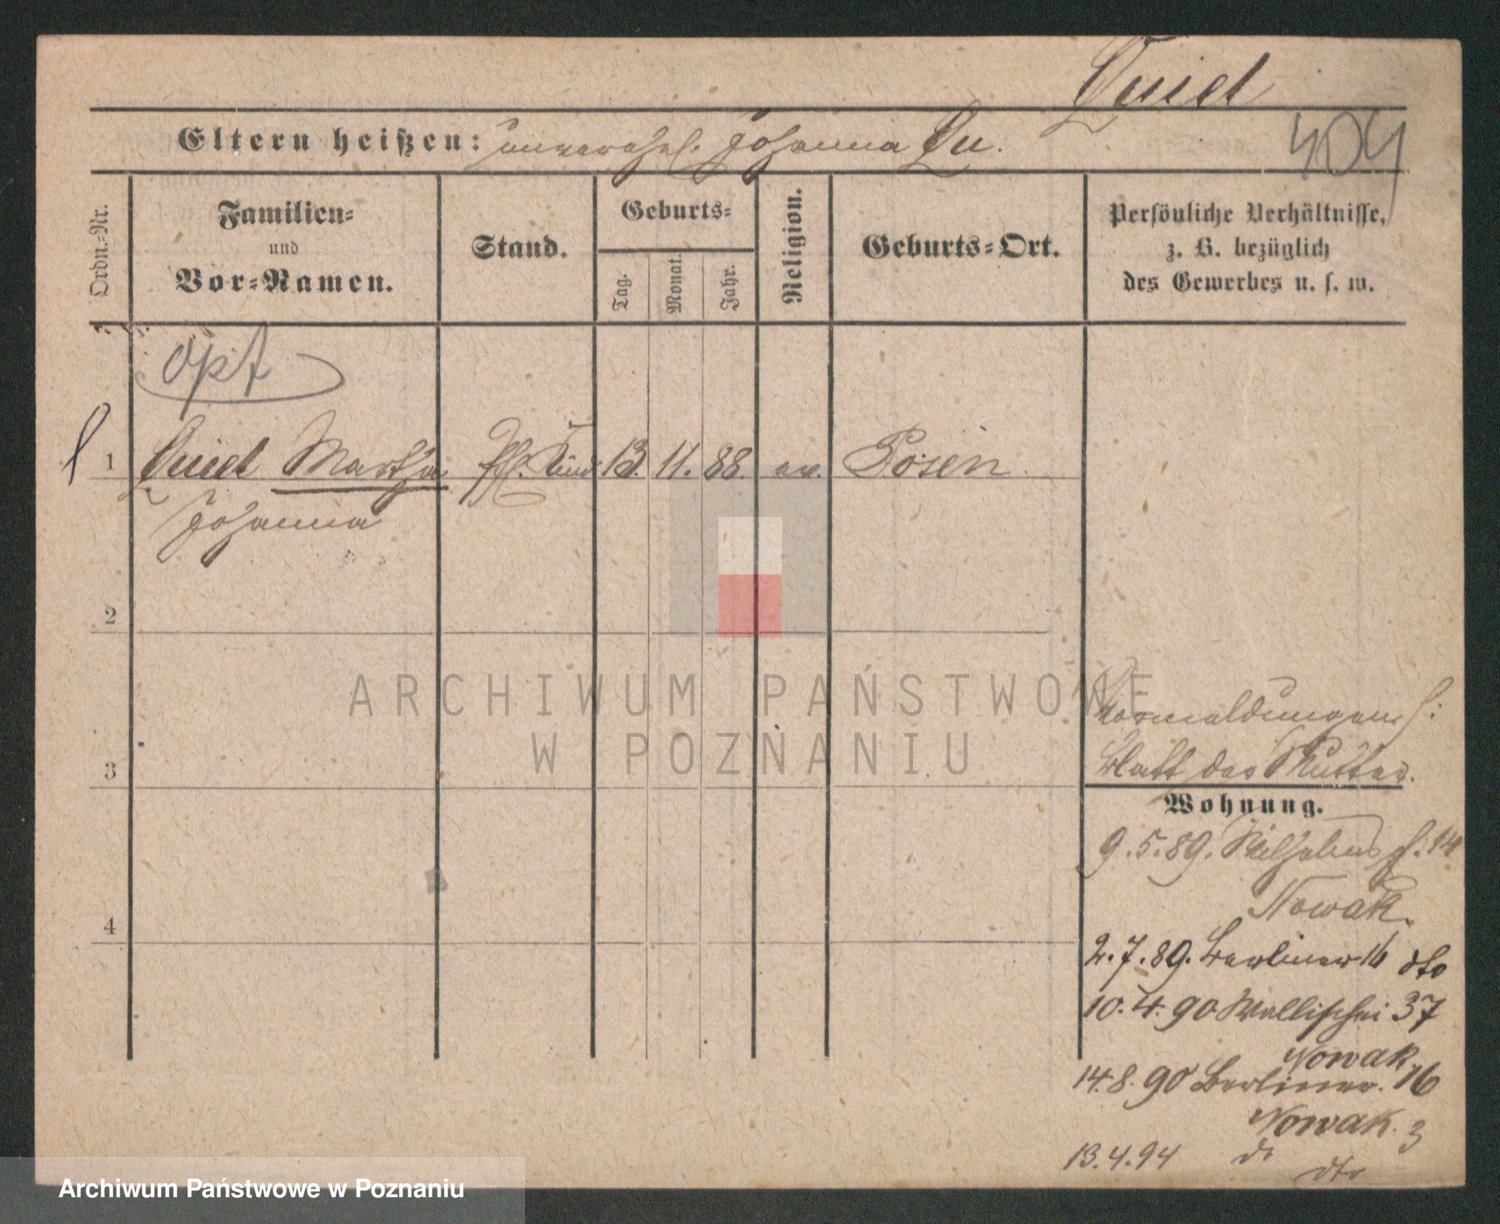 Quiel
Eltern heißen: unverehel. Johanna Qu.
404
Ordn.-Nr.
Familien-
und
Vor-Namen.
Stand.
Geburts-
Tag.
Monat.
Jahr.
Religion.
Geburts-Ort.
Persönliche Verhältnisse,
z. B. bezüglich
des Gewerbes u. s. w.
opt
1 Quiel Martha Pfl. Kind 13. 11. 88. ev. Posen
Johanna
2
3
4
Vormeldungen s:
Blatt der Mutter.
Wohnung.
9.5.89. Wilhelms 14
Nowak.
2.7.89. Berliner 16 dto
10.4.90 Wallischei 37
Nowak.
14.8.90 Berliner. 16
Nowak. 3
13.4.94 do
dto
ARCHIWUM PAŃSTWOWE
W POZNANIU
Archiwum Państwowe w Poznaniu